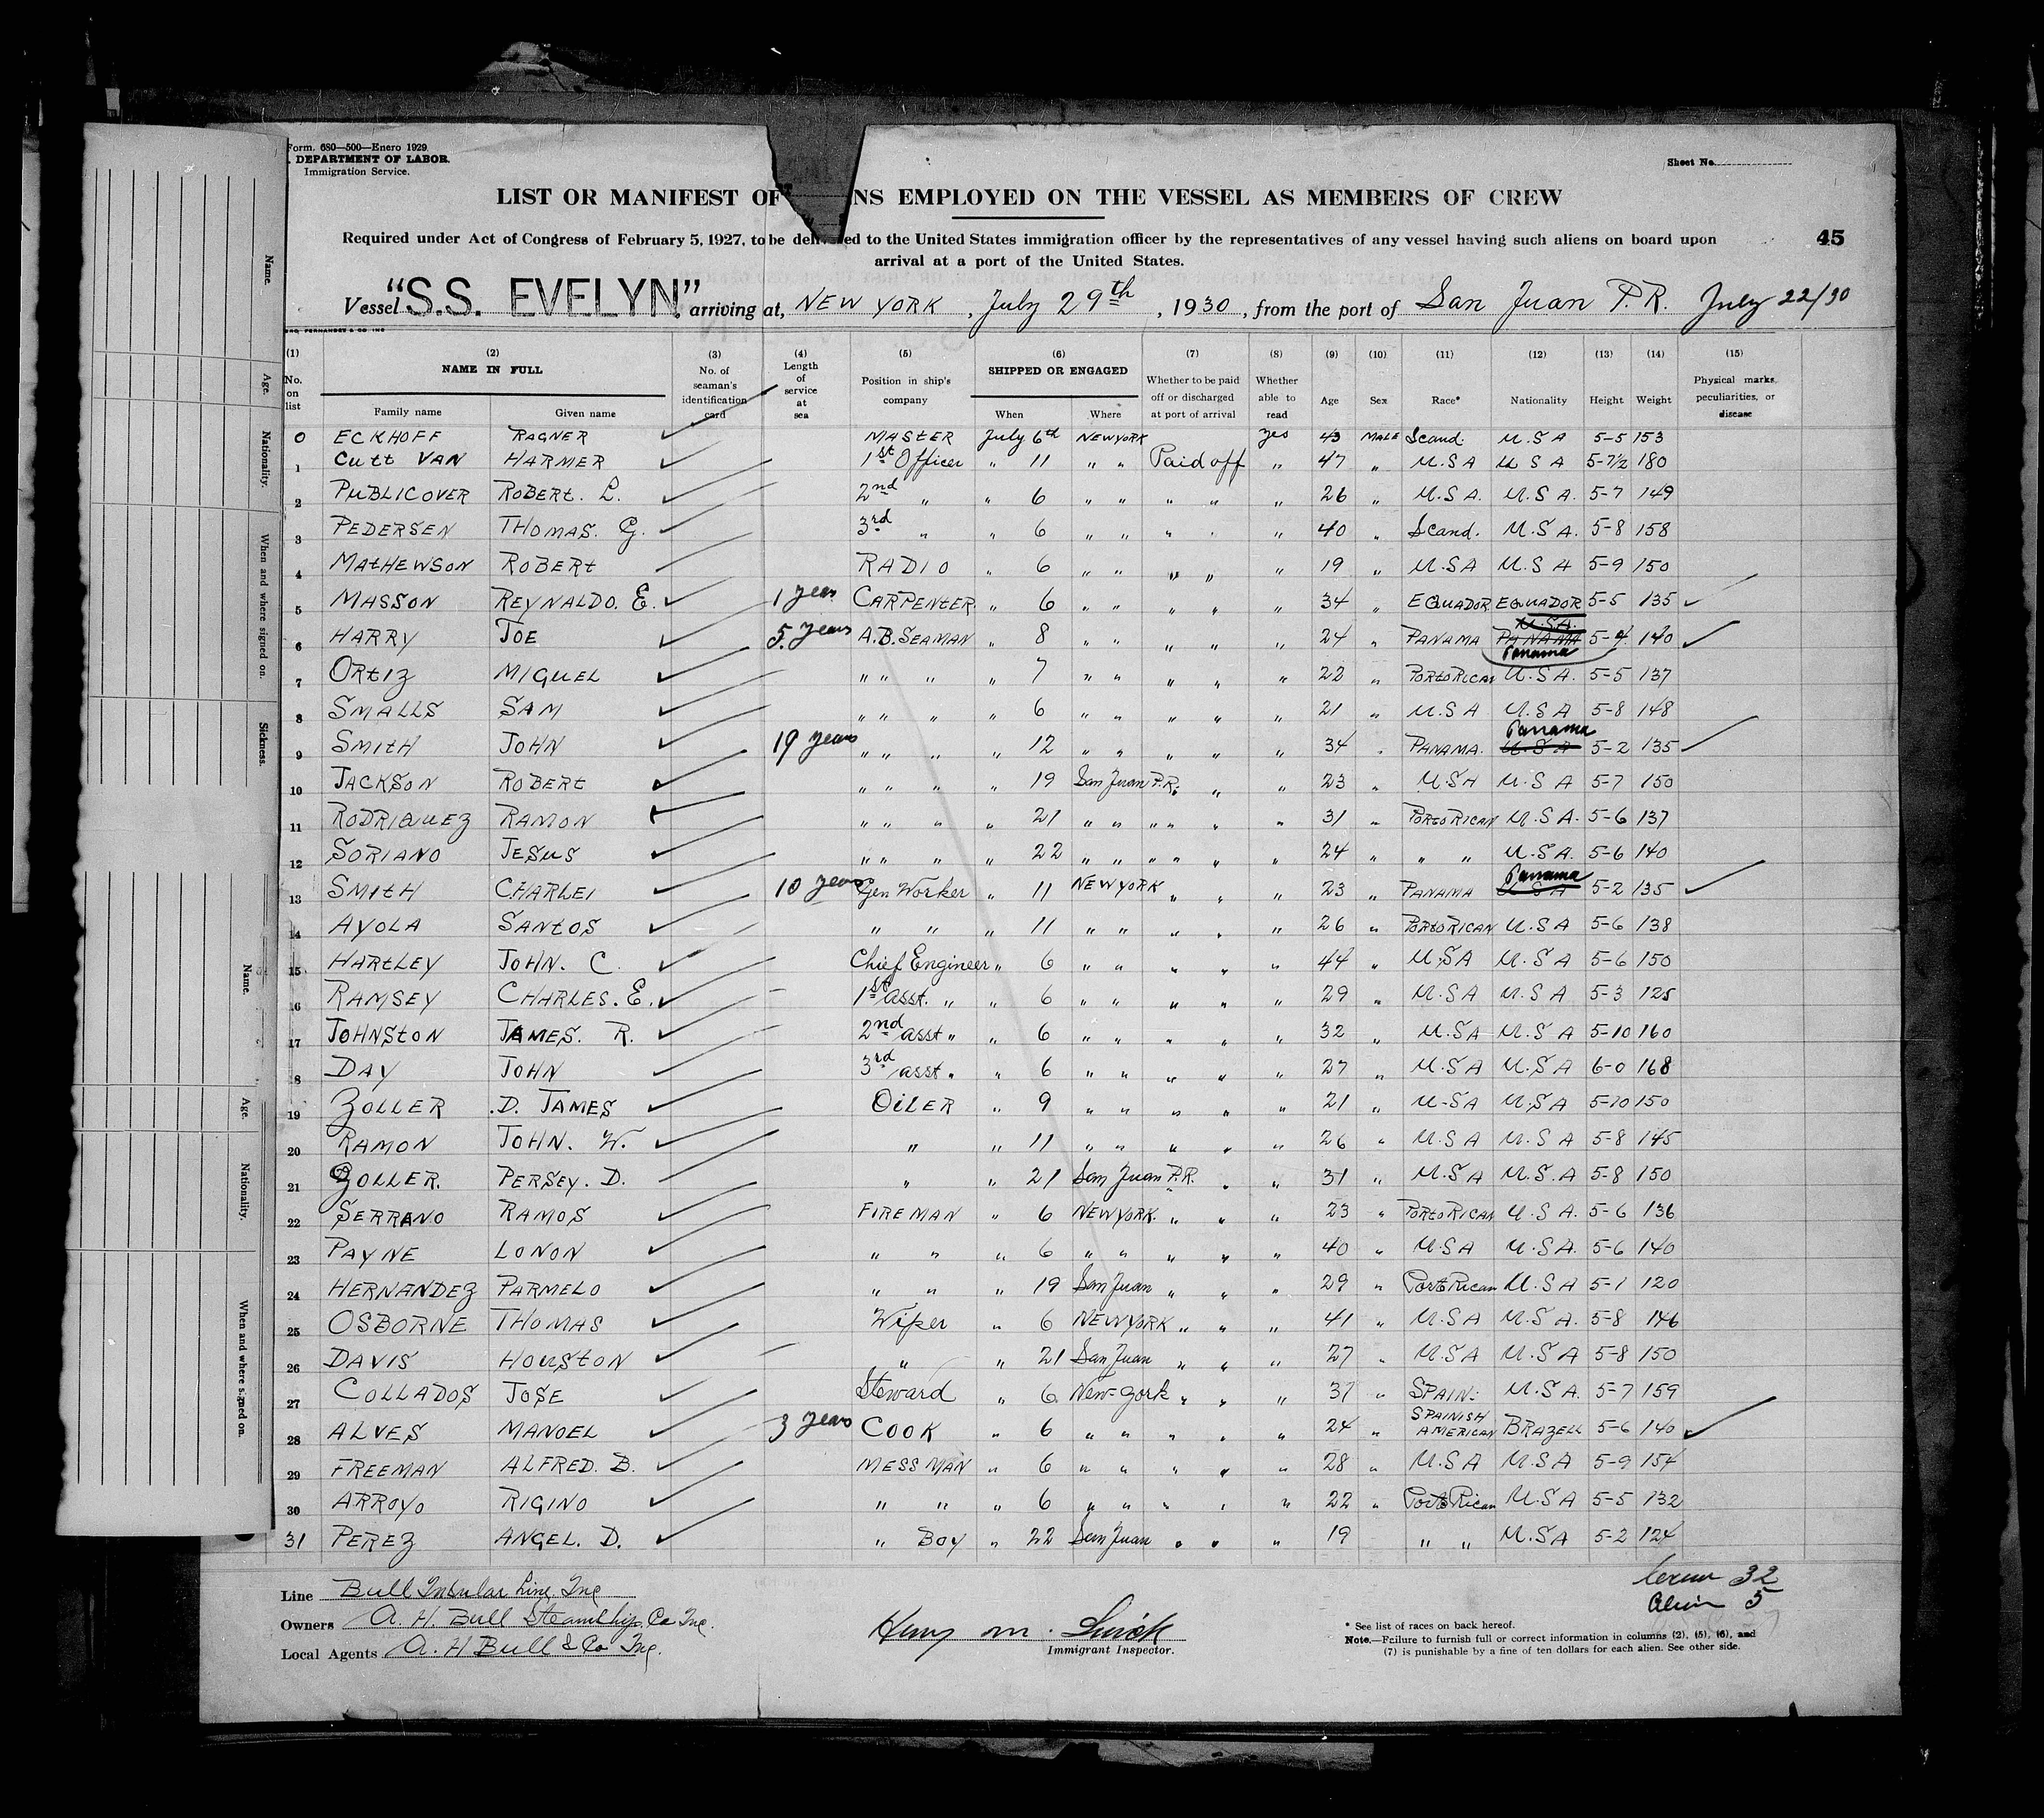 Form. 680—500—Enero 1929.
DEPARTMENT OF LABOR.
Immigration Service.
Sheet No.
LIST OR MANIFEST OF NS EMPLOYED ON THE VESSEL AS MEMBERS OF CREW
Required under Act of Congress of February 5, 1927, to be delivered to the United States immigration officer by the representatives of any vessel having such aliens on board upon
arrival at a port of the United States.
45
Vessel "S.S. EVELYN", arriving at, NEW YORK, July 29th, 1930, from the port of San Juan P.R. July 22/30
(1) (2) (3) (4) (5) (6) (7) (8) (9) (10) (11) (12) (13) (14) (15)
No. on list NAME IN FULL Family name Given name No. of seaman's identification card Length of service at sea Position in ship's company SHIPPED OR ENGAGED When Where Whether to be paid off or discharged at port of arrival Whether able to read Age Sex Race* Nationality Height Weight Physical marks, peculiarities, or disease
0 ECKHOFF RAGNER MASTER July 6th NEW YORK yes 43 MALE Scand. U.S.A 5-5 153
1 Cutt VAN HARMER 1st Officer " 11 " " Paid off " 47 " U.S.A U S A 5-7½ 180
2 PUBLICOVER ROBERT. L. 2nd " " 6 " " " " " 26 " U.S.A. U.S.A. 5-7 149
3 PEDERSEN THOMAS. G. 3rd " " 6 " " " " " 40 " Scand. U.S.A. 5-8 158
4 MATHEWSON ROBERT RADIO " 6 " " " " " 19 " U.S.A U.S.A 5-9 150
5 MASSON REYNALDO. E. 1 year CARPENTER. " 6 " " " " " 34 " EQUADOR EQUADOR 5-5 135
6 HARRY JOE 5 years A.B. SEAMAN " 8 " " " " " 24 " PANAMA U.S.A. PANAMA Panama 5-4 140
7 ORTIZ MIGUEL " " " " 7 " " " " " 22 " PORTO RICAN U.S.A. 5-5 137
8 SMALLS SAM " " " " 6 " " " " " 21 " U.S.A U.S.A 5-8 148
9 SMITH JOHN 19 years " " " " 12 " " " " " 34 " PANAMA. Panama U.S.A 5-2 135
10 JACKSON ROBERT " " " " 19 San Juan P.R. " " 23 " U.S.A U.S.A 5-7 150
11 RODRIQUEZ RAMON " " " " 21 " " " " " " 31 " PORTO RICAN U.S.A. 5-6 137
12 SORIANO JESUS " " " " 22 " " " " " " 24 " " " U.S.A. 5-6 140
13 SMITH CHARLEI 10 years Gen Worker " 11 NEW YORK " " " 23 " PANAMA Panama U S A 5-2 135
14 AYOLA SANTOS " " " 11 " " " " " 26 " PORTO RICAN U.S.A 5-6 138
15 HARTLEY JOHN. C. Chief Engineer " 6 " " " " " 44 " U.S.A U.S.A 5-6 150
16 RAMSEY CHARLES. E. 1st asst. " " 6 " " " " " 29 " U.S.A U.S.A 5-3 125
17 JOHNSTON JAMES. R. 2nd asst " " 6 " " " " " 32 " U.S.A U.S.A 5-10 160
18 DAY JOHN 3rd asst " " 6 " " " " " 27 " U.S.A U.S.A 6-0 168
19 ZOLLER .D. JAMES OILER " 9 " " " " " 21 " U-SA U.S.A 5-10 150
20 RAMON JOHN. W. " " 11 " " " " " 26 " U.S.A U.S.A 5-8 145
21 ZOLLER. PERSEY. D. " " 21 San Juan P.R. " " 31 " U.S.A U.S.A 5-8 150
22 SERRANO RAMOS FIREMAN " 6 NEW YORK. " " " 23 " PORTO RICAN U.S.A. 5-6 136
23 PAYNE LONON " " " 6 " " " " " 40 " U.S.A U.S.A. 5-6 140
24 HERNANDEZ PARMELO " " " 19 San Juan " " " 29 " Porto Rican U.S.A 5-1 120
25 OSBORNE THOMAS Wiper " 6 NEW YORK " " " 41 " U.S.A U.S.A. 5-8 146
26 DAVIS HOUSTON " " 21 San Juan " " " 27 " U.S.A U.S.A 5-8 150
27 COLLADOS JOSE Steward " 6 New-York " " " 37 " SPAIN. U.S.A. 5-7 159
28 ALVES MANOEL 3 years COOK " 6 " " " " " 24 " SPAINISH AMERICAN BRAZELL 5-6 140
29 FREEMAN ALFRED. B. MESS MAN " 6 " " " " " 28 " U.S.A U.S.A 5-9 154
30 ARROYO RIGINO " " " 6 " " " " " 22 " Porto Rican U.S.A 5-5 132
31 PEREZ ANGEL. D. " BOY " 22 San Juan " " " 19 " " U.S.A 5-2 124
Crew 32
Alien 5
Line Bull Insular Line. Inc
Owners A. H. Bull Steamship Co Inc.
Local Agents A. H Bull & Co Inc.
Henry M.
Immigrant Inspector.
* See list of races on back hereof.
Note.—Failure to furnish full or correct information in columns (2), (5), (6), and
(7) is punishable by a fine of ten dollars for each alien. See other side.
Name.
Age.
Nationality.
When and where signed on.
Sickness.
Name.
Age.
Nationality.
When and where signed on.